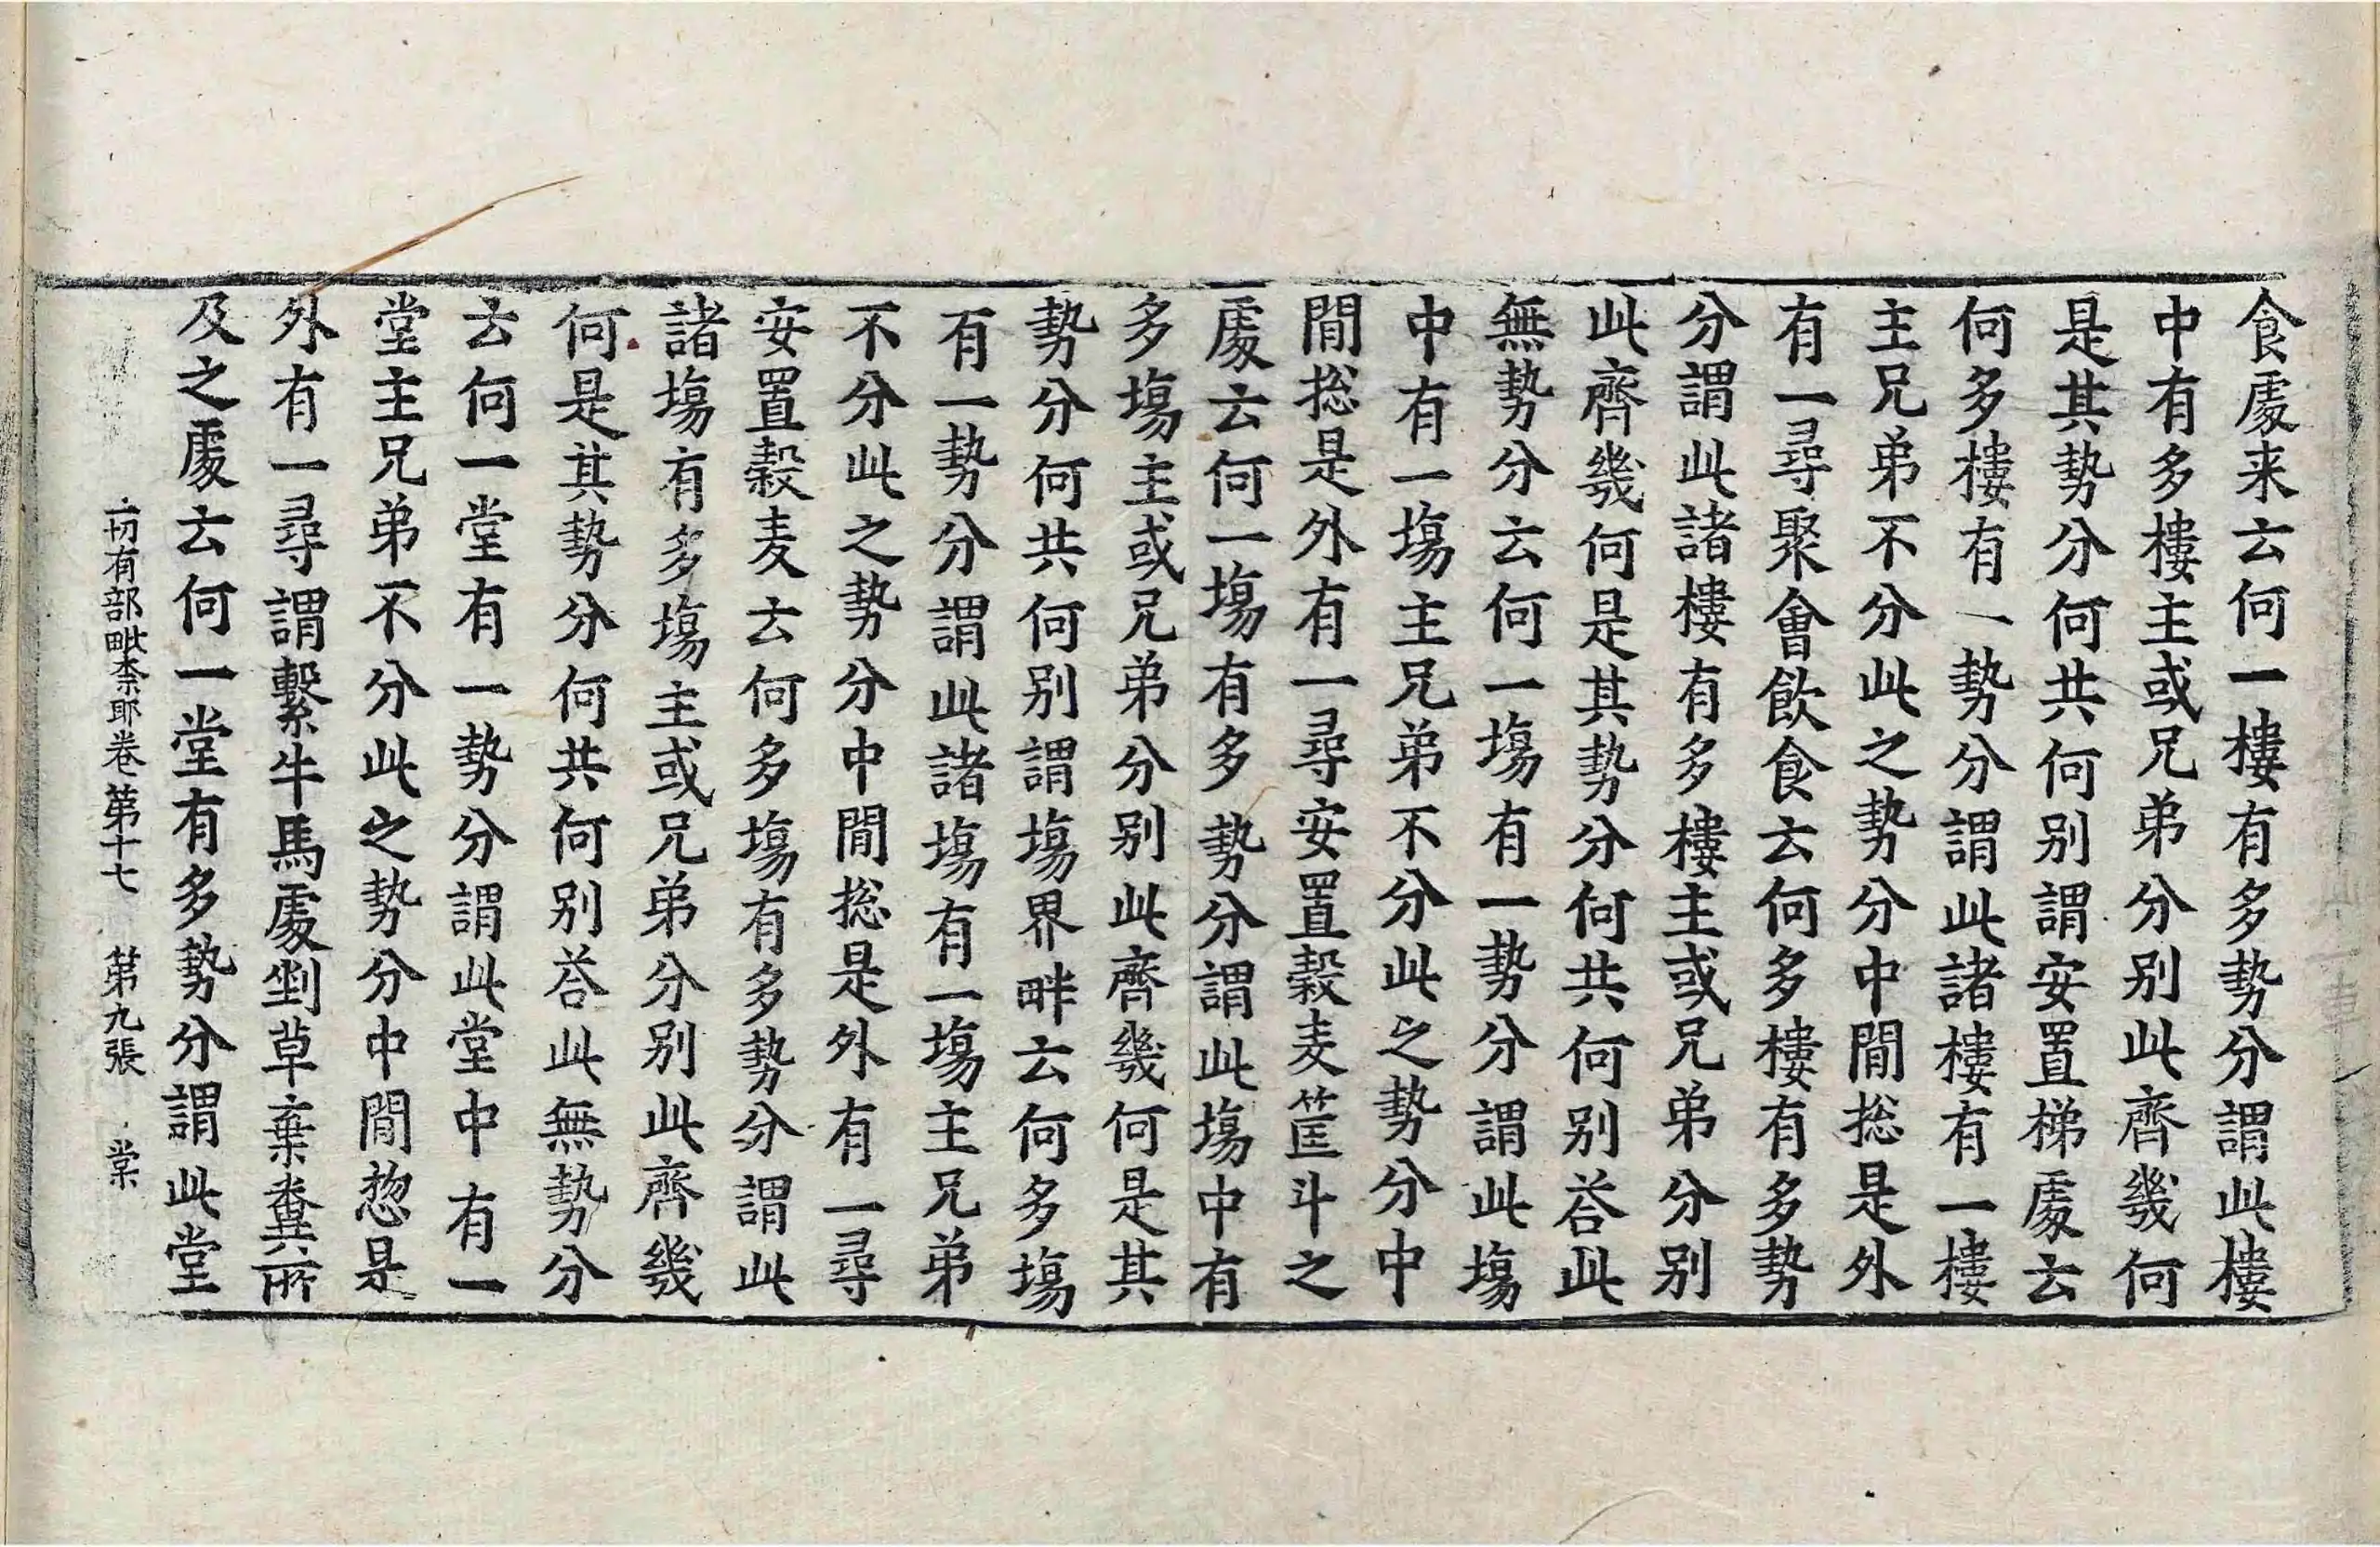 食處来云何一樓有多勢分謂此樓
中有多樓主或兄弟分别此齊幾何
是其勢分何共何别謂安置梯處云
何多樓有一勢分謂此諸樓有一樓
主兄弟不分此之勢分中間揔是外
有一尋聚會飲食云何多樓有多勢
分謂此諸樓有多樓主或兄弟分别
此齊幾何是其勢分何共何别荅此
無勢分云何一塲有一勢分謂此塲
中有一塲主兄弟不分此之勢分中
間揔是外有一尋安置穀麦筐斗之
處云何一塲有多勢分謂此塲中有
多塲主或兄弟分别此齊幾何是其
勢分何共何别謂塲界畔云何多塲
有一勢分謂此諸塲有一塲主兄弟
不分此之勢分中間揔是外有一尋
安置穀麦云何多塲有多勢分謂此
諸塲有多塲主或兄弟分别此齊幾
何是其勢分何共何别荅此無勢分
云何一堂有一勢分謂此堂中有一
堂主兄弟不分此之勢分中間惣是
外有一尋謂繫牛馬處剉草棄糞所
及之處云何一堂有多勢分謂此堂
一切有部毗柰耶卷第十七 第九張 棠